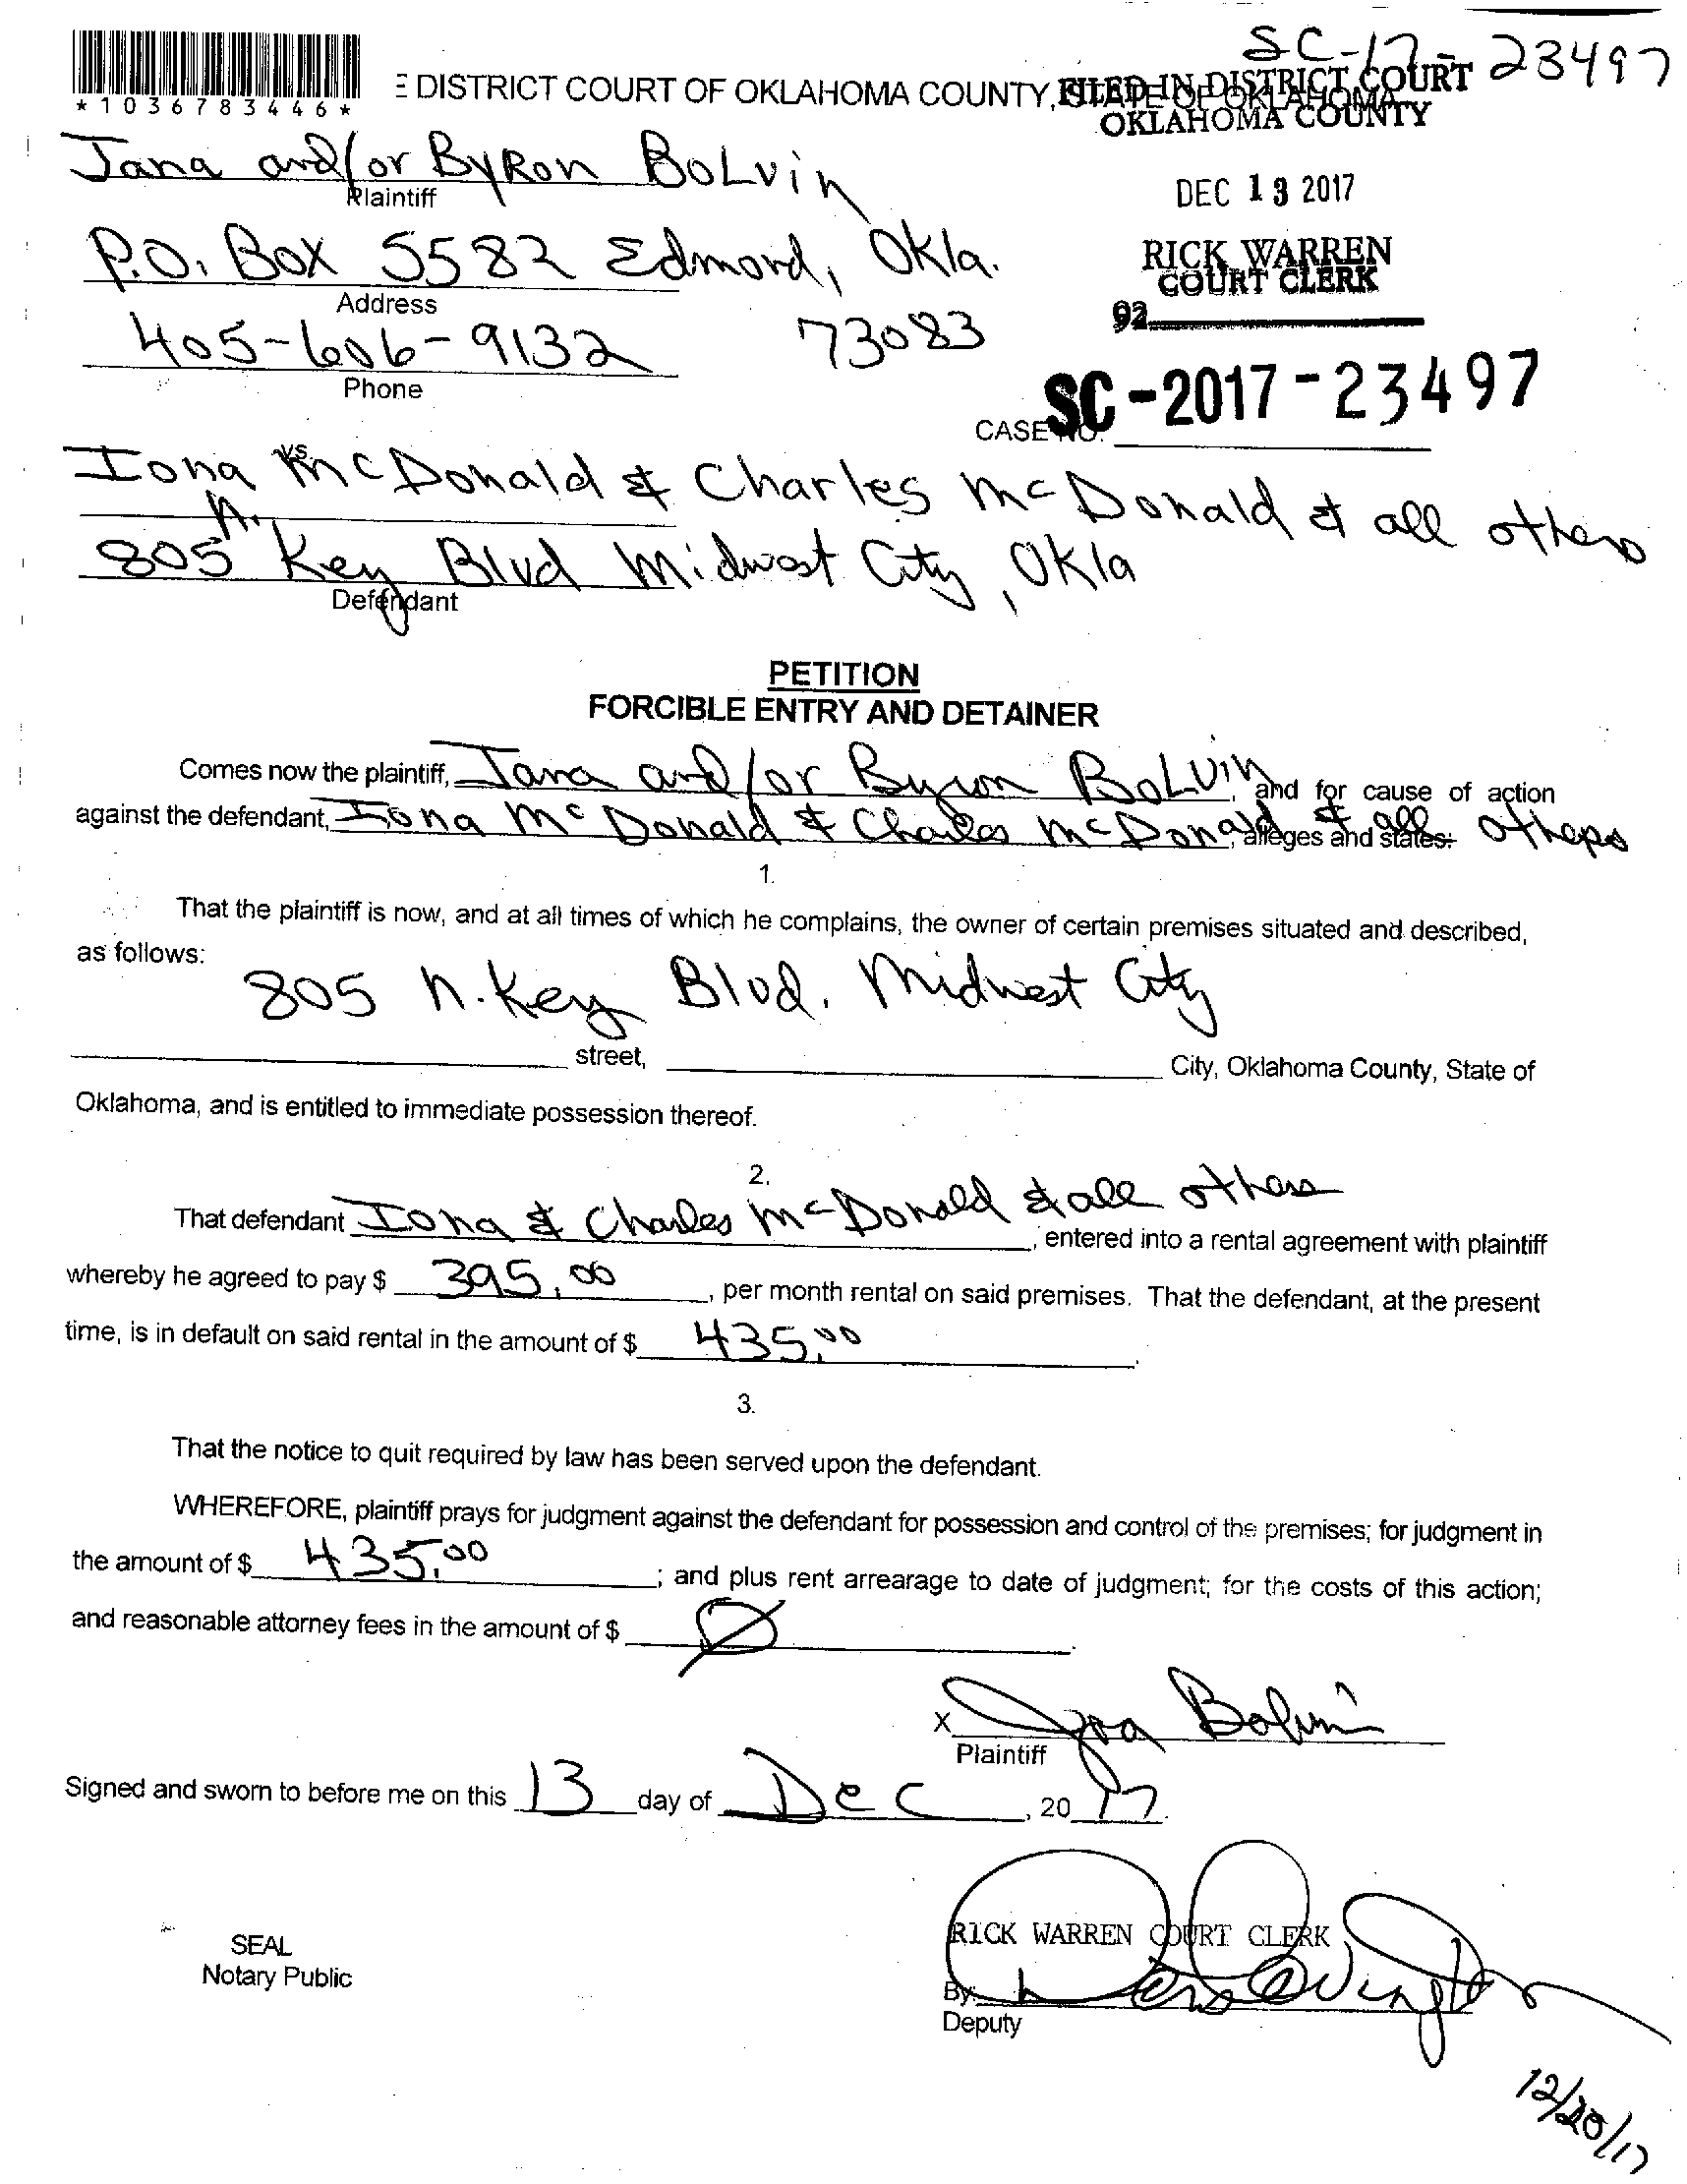 SC-17-23497
*1036783446*
E DISTRICT COURT OF OKLAHOMA COUNTY, STATE OF OKLAHOMA
FILED IN DISTRICT COURT
OKLAHOMA COUNTY
Jana and/or Byron Bolvin
Plaintiff
DEC 13 2017
P.O. Box 5582 Edmond, Okla.
Address
RICK WARREN
COURT CLERK
92
405-606-9132 73083
Phone
SC-2017-23497
CASE NO.
vs.
Iona McDonald & Charles McDonald & all others
805 N. Key Blvd Midwest City, Okla
Defendant
PETITION
FORCIBLE ENTRY AND DETAINER
Comes now the plaintiff, Jana and/or Byron Bolvin, and for cause of action
against the defendant, Iona McDonald & Charles McDonald & all others, alleges and states:
1.
That the plaintiff is now, and at all times of which he complains, the owner of certain premises situated and described,
as follows:
805 N. Key Blvd. Midwest City
street, City, Oklahoma County, State of
Oklahoma, and is entitled to immediate possession thereof.
2.
That defendant Iona & Charles McDonald & all others, entered into a rental agreement with plaintiff
whereby he agreed to pay $ 395.00, per month rental on said premises. That the defendant, at the present
time, is in default on said rental in the amount of $ 435.00.
3.
That the notice to quit required by law has been served upon the defendant.
WHEREFORE, plaintiff prays for judgment against the defendant for possession and control of the premises; for judgment in
the amount of $ 435.00; and plus rent arrearage to date of judgment; for the costs of this action;
and reasonable attorney fees in the amount of $ Ø.
X Jana Bolvin
Plaintiff
Signed and sworn to before me on this 13 day of Dec, 2017.
RICK WARREN COURT CLERK
SEAL
Notary Public
By:
Deputy
12/20/17